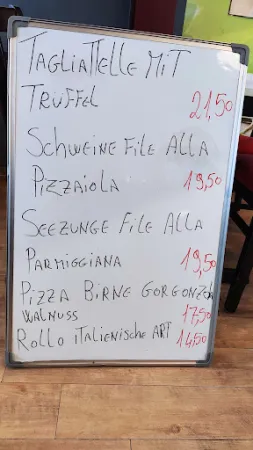 TAGLIATTELLE MIT
TRÜFFEL 21,50
SCHWEINE FILE ALLA
PIZZAIOLA 19,50
SEEZUNGE FILE ALLA
PARMIGGIANA 19,50
PIZZA BIRNE GORGONZOLA
WALNUSS 17,50
ROLLO ITALIENISCHE ART 14,50